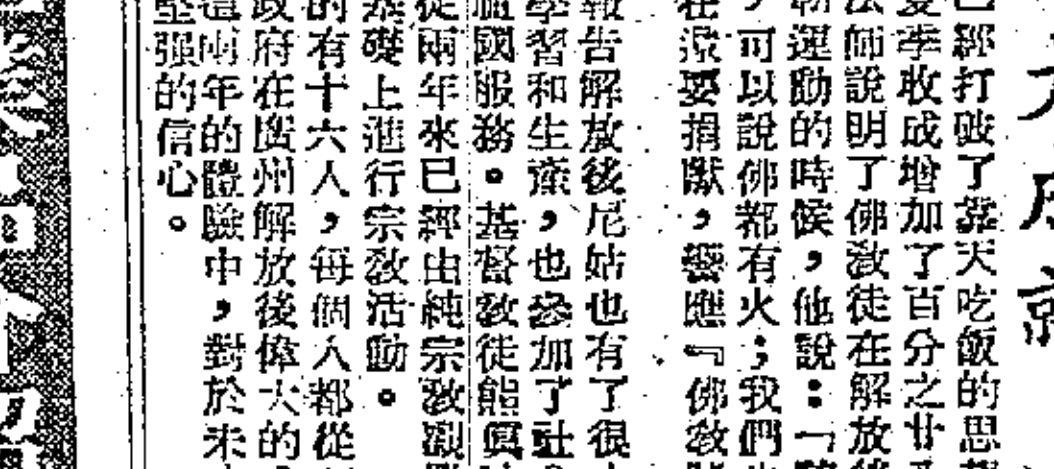 經打破了靠天吃飯的思
夏季收成增加了百分之廿
法師說明了佛敎徒在解放後
運動的時候，他說：「
，可以說佛都有火；我們
在沒要捐獻，響應『佛敎
報告解放後尼姑也有了很
學習和生產，也參加了社
國服務。基督敎徒熊眞
從兩年來已經由純宗敎觀
基礎上進行宗敎活動。
的有十六人，每個人都從
政府在廣州解放後偉大的
這兩年的體驗中，對於未
堅强的信心。